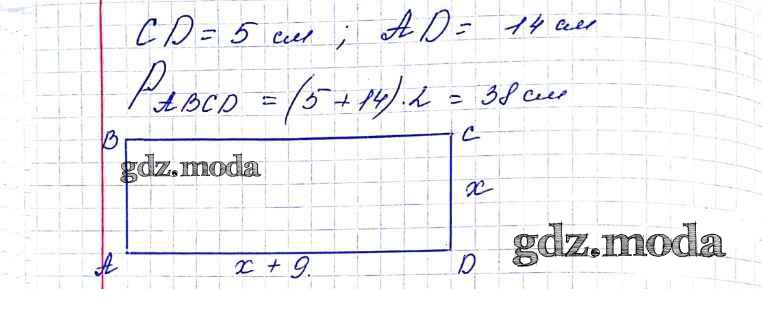 CD = 5 см ; AD = 14 см
P ABCD = (5 + 14) · 2 = 38 см
B C
gdz.moda
x
gdz.moda
A x + 9. D